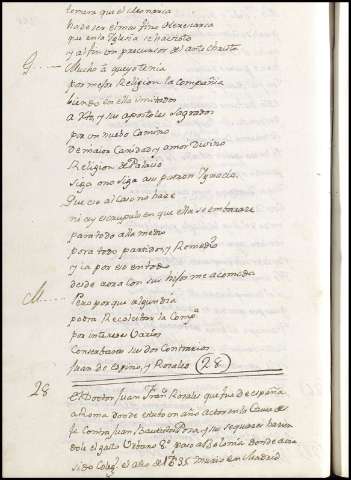 temera que el Leonaria
ha de ser el mas fino
que en la Iglesia se ha visto
y al fin un precursor del ante christo
G. Mucho â que yo tenia
por mejor Religion la compañia
biendo en ella imitados
a Xpto, y sus apostoles sagrados
por un nuebo Camino
de maior Caridad y amor Divino
Religion de Palacio
siga o no siga a su patron Ignacio
Que eso al caso no hace
ni ay escrupulo en que ella se embarace
para todo alla medio
para todo partido, y Remedio
y ia por eso en todo
desde aora con sus me acomodo
M. Pero porque algun dia
podra Recalcitrar la Compª
por intereses Varios
Conserbamos sus dos Contrarios
Juan de Espino, y Rosales (28
28 el Doctor Juan Franº Rosales que fue de españa
a Roma donde estubo un año actor en la Causa de
fe Contra Juan Bautista Poza, y sus sequaces haviendo
dole el gasto Urbano 8º paso a Bolonia donde avia
sido Coleg.l el año de 1635 murio en Madrid